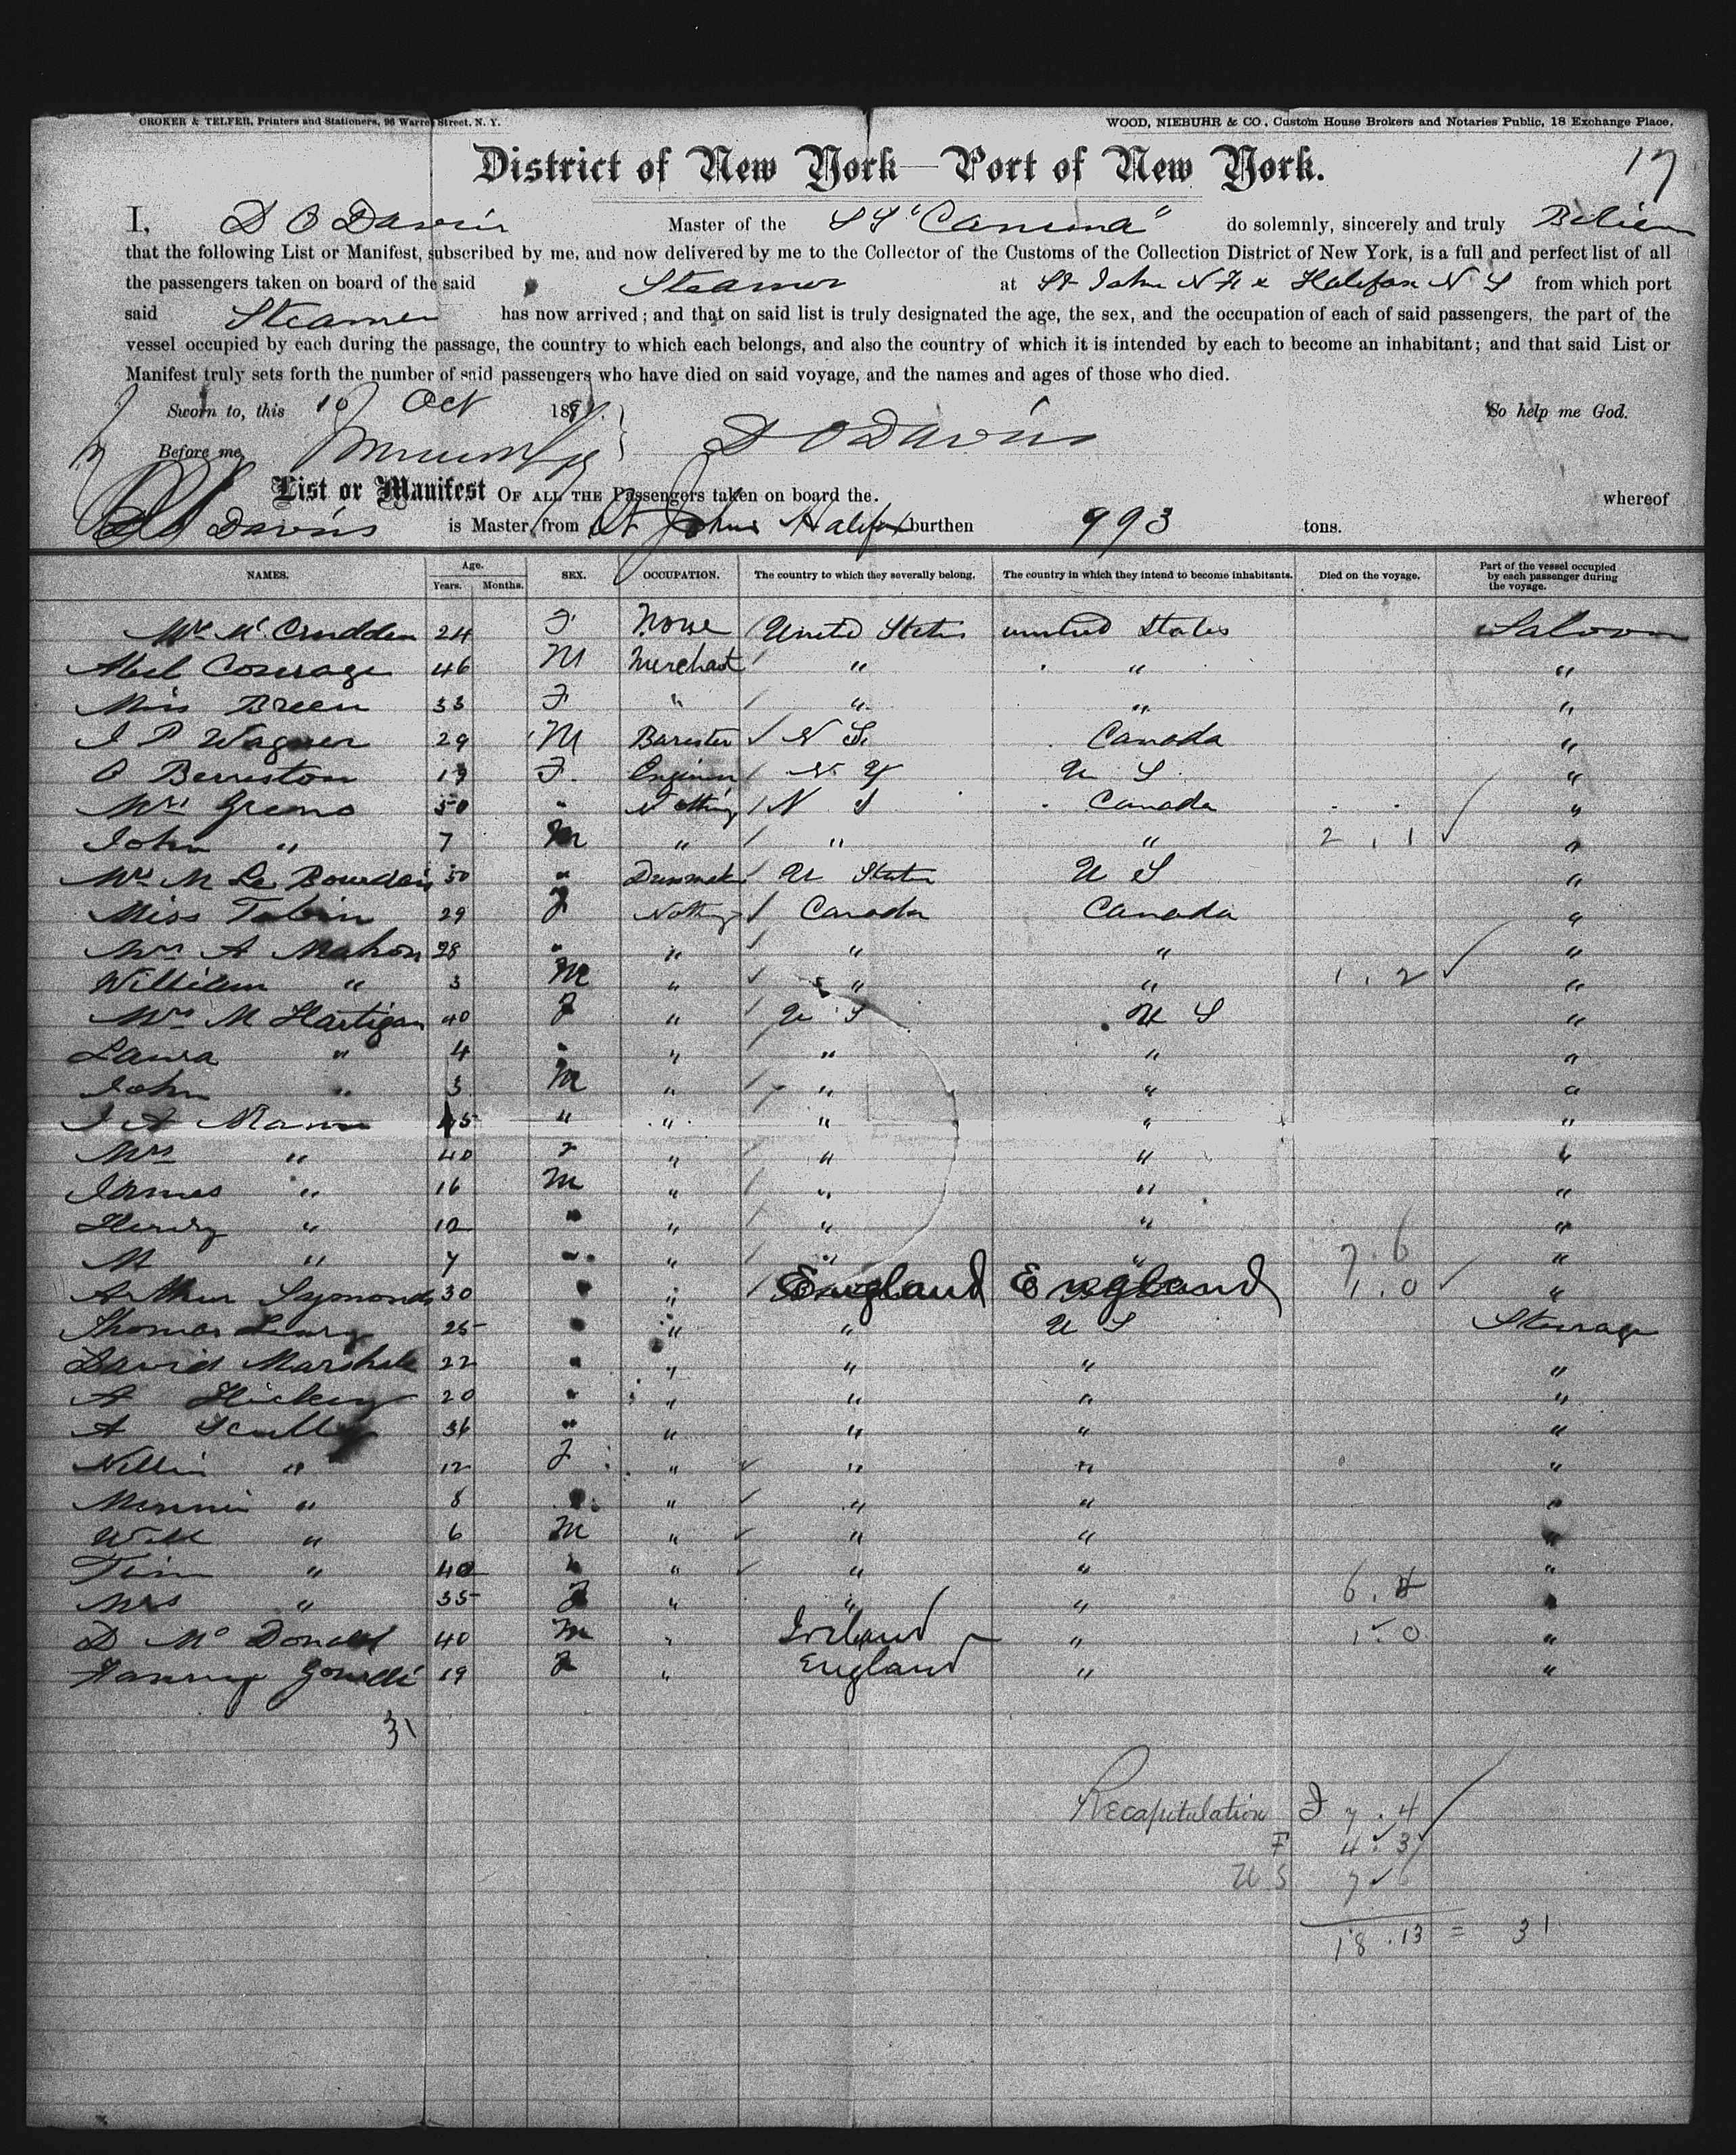 CROKER & TELFER, Printers and Stationers, 96 Warren Street, N. Y. WOOD, NIEBUHR & CO., Custom House Brokers and Notaries Public, 18 Exchange Place.
17
District of New York—Port of New York.
I, D O Davis Master of the SS "Canima" do solemnly, sincerely and truly
that the following List or Manifest, subscribed by me, and now delivered by me to the Collector of the Customs of the Collection District of New York, is a full and perfect list of all
the passengers taken on board of the said Steamer at St John N F & Halifax N S from which port
said Steamer has now arrived; and that on said list is truly designated the age, the sex, and the occupation of each of said passengers, the part of the
vessel occupied by each during the passage, the country to which each belongs, and also the country of which it is intended by each to become an inhabitant; and that said List or
Manifest truly sets forth the number of said passengers who have died on said voyage, and the names and ages of those who died.
Sworn to, this Oct 18 So help me God.
Before me, D O Davis
List or Manifest OF ALL THE Passengers taken on board the. whereof
D O Davis is Master, from St Johns Halifax burthen 993 tons.
NAMES. Age. Years. Months. SEX. OCCUPATION. The country to which they severally belong. The country in which they intend to become inhabitants. Died on the voyage. Part of the vessel occupied by each passenger during the voyage.
Mc Crudden 24 F None United States United States Saloon
Abel Courage 46 M Merchant " " "
Miss Breen 33 F " " " "
J P Wagner 29 M Barister N S. Canada "
F. N. Y U S. "
Mrs 50 " Nothing N S Canada "
John " 7 M " " " 2 . 1 "
Mrs M Le Bourdais 50 " U States U S "
Miss Tobin 29 F Nothing Canada Canada "
Mrs A Mahon 28 " " " " "
William " 3 M " " " 1 . 2 "
Mrs M Hartigan 40 F " U S U S "
Laura " 4 " " " " "
John " 3 M " " " "
J A Mann " " " " "
Mrs " 40 F " " " "
James " 16 M " " " "
Henry " 12 " " " " "
M " 7 " " " " 7 . 6 "
Arthur Symonds 30 " " England England 1 . 0 "
Thomas 25 " " " U S Steerage
David Marshall 22 " " " " "
A Hickey 20 " " " " "
A Scully 36 " " " " "
Nellie " 12 F " " " "
Minnie " 8 " " " " "
Will " 6 M " " " "
Tim " 40 " " " " "
Mrs " 35 F " " " 6 . "
D Mc Donald 40 M " Ireland " 1 . 0 "
19 F " England " "
31
Recapitulation 7 . 4
F 4 . 3
U S 7 6
18 . 13 = 31